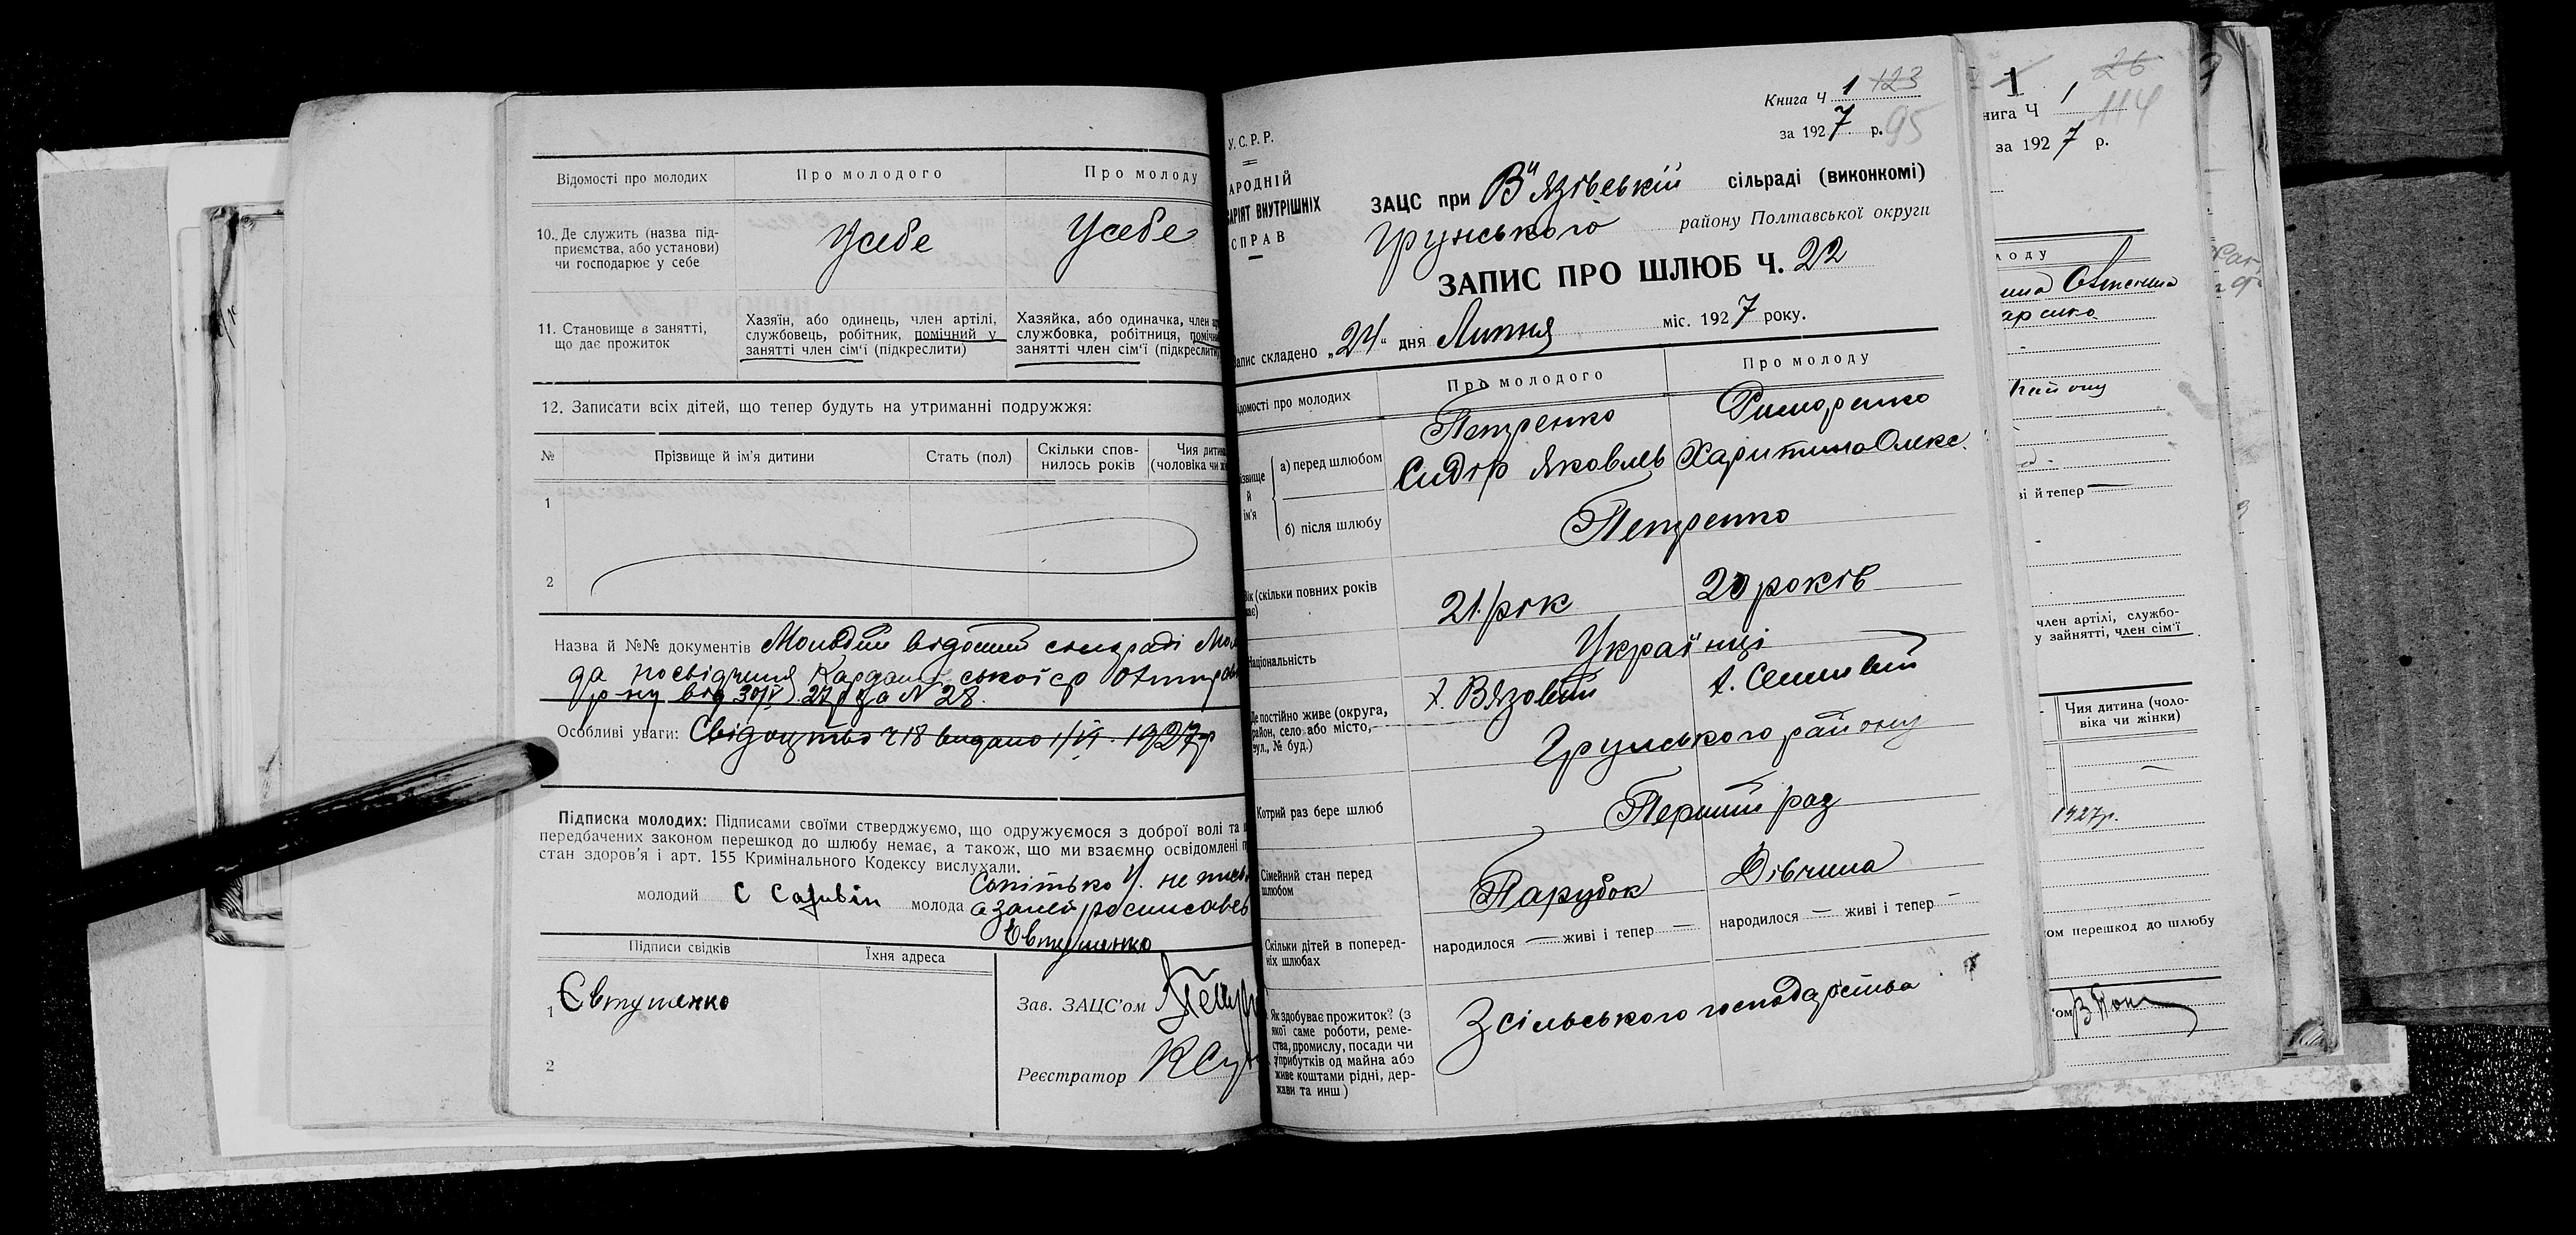 Відомості про молодих
Про молодого
Про молоду
10. Де служить (назва під-
приємства, або установи)
чи господарює у себе
Усебе
Усебе
11. Становище в занятті,
що дає прожиток
Хазяїн, або одинець, член артілі,
службовець, робітник, помічний у
занятті член сім'ї (підкреслити)
Хазяйка, або одиначка, член
службовка, робітниця,
занятті член сім'ї (підкреслити
12. Записати всіх дітей, що тепер будуть на утриманні подружжя:
№
Прізвище й ім'я дитини
Стать (пол)
Скільки спов-
нилось років
Чия
(чоловіка чи
1
2
Назва й №№ документів Молодий відомий сільраді
да посвідчення
р-ну від 30/V 27 р за N 28.
Особливі уваги: Свідоцтво Ч 18 видано 1/VI. 1927р
Підписка молодих: Підписами своїми стверджуємо, що одружуємося з доброї волі та
передбачених законом перешкод до шлюбу немає, а також, що ми взаємно освідомлені
стан здоров'я і арт. 155 Кримінального Кодексу вислухали.
молодий С
молода
не
а за неї росписавсь
Євтушенко
Підписи свідків
Їхня адреса
1 Євтушенко
2
Зав. ЗАЦС'ом
Реєстратор
Книга Ч 1 123
за 1927 р. 95
У.С.Р.Р.
АРОДНІЙ
АРІЯТ ВНУТРІШНІХ
СПРАВ
ЗАЦС при В'язівській сільраді (виконкомі)
Грунського району Полтавської округи
ЗАПИС ПРО ШЛЮБ Ч. 22
Запис складено „24“ дня Липня міс. 1927 року.
Відомості про молодих
Про молодого
Про молоду
ізвище
й
ім'я
а) перед шлюбом
Петренко
Сидір Яковлев
Харитина Олекс.
б) після шлюбу
Петренко
Вік (скільки повних років
має)
21 рік
20 років
Національність
Українці
Де постійно живе (округа,
район, село або місто,
вул., № буд.)
х. Вязовий
х.
Грунського району
Котрий раз бере шлюб
Перший раз
Сімейний стан перед
шлюбом
Парубок
Дівчина
Скільки дітей в поперед-
ніх шлюбах
народилося — живі і тепер —
народилося — живі і тепер —
Як здобуває прожиток? (з
якої саме роботи, реме-
ства, промислу, посади чи
з прибутків од майна або
живе коштами рідні, дер-
жави та инш)
З сільського господарства
1 26
нига Ч 1 114
за 1927 р.
лоду
району
ві й тепер —
член артілі, службо-
у зайнятті, член сім'ї
Чия дитина (чоло-
віка чи жінки)
—
1927р.
ом перешкод до шлюбу
'ом